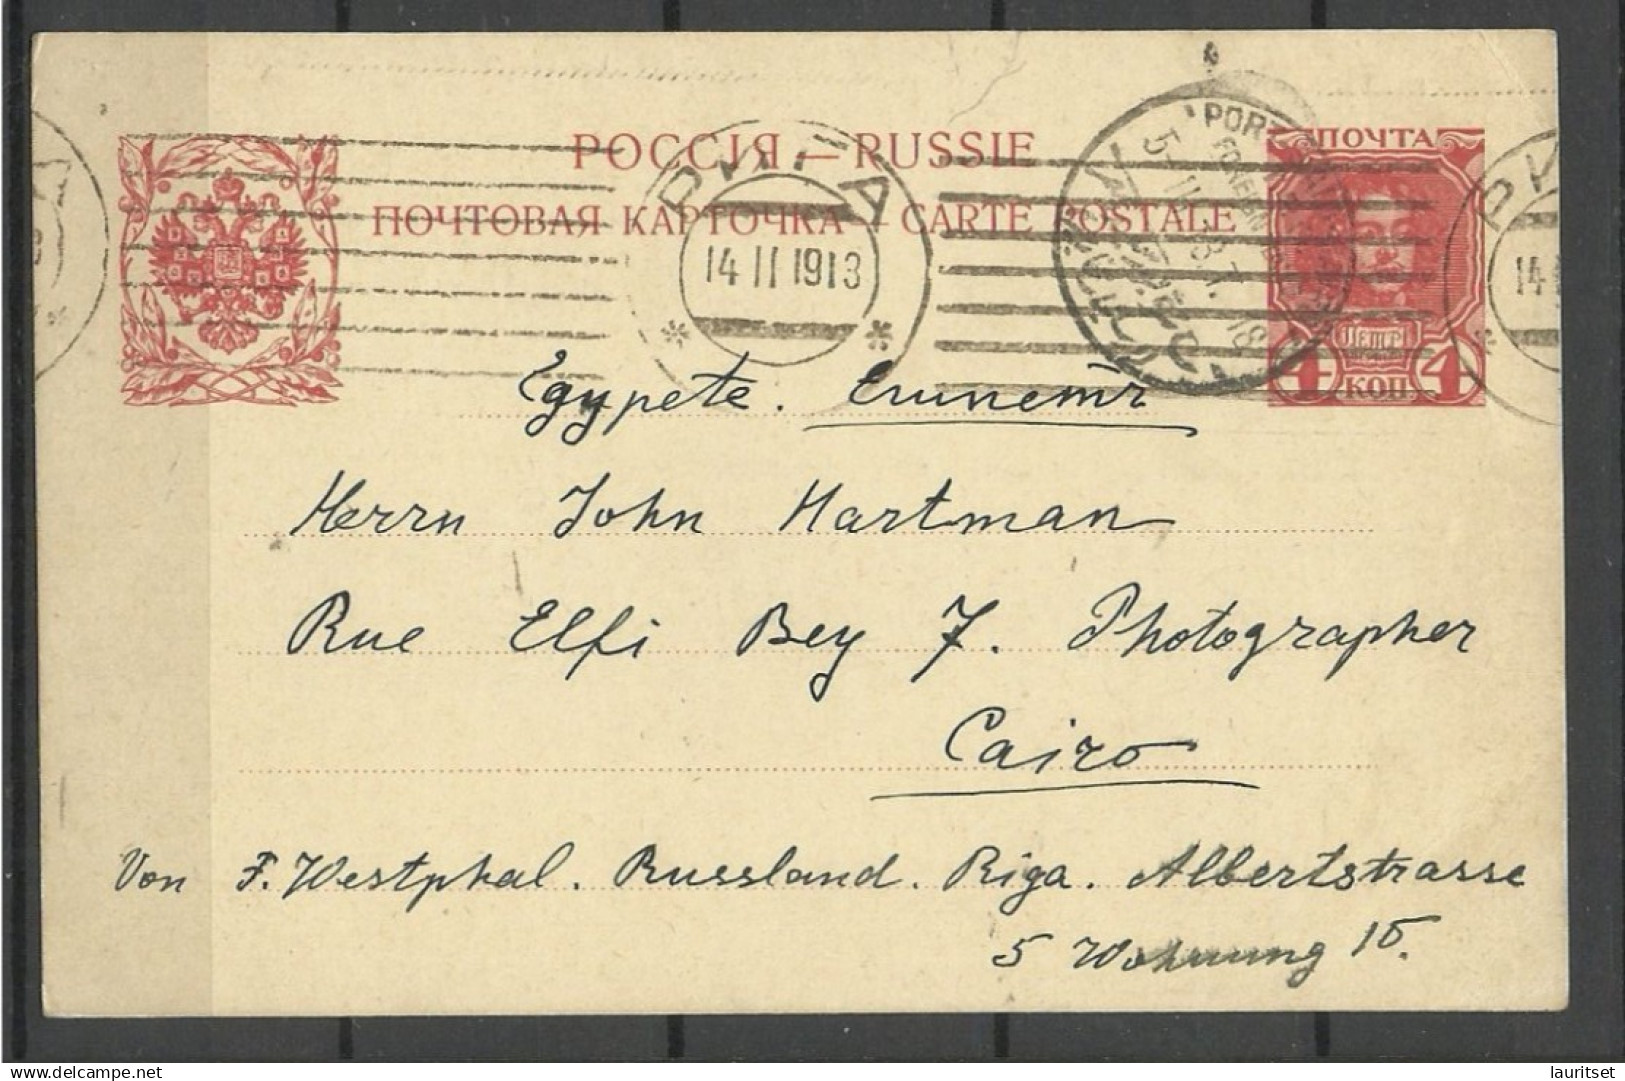 РОССІЯ — RUSSIE
ПОЧТОВАЯ КАРТОЧКА — CARTE POSTALE
ПОЧТА
4 КОП. 4
РИГА
14 II 1913
PORT
5-
Egypete. Египетъ
Herrn John Hartman
Rue Elfi Bey 7. Photographer
Cairo
Von F. Westphal. Russland. Riga. Albertstrasse
5 Wohnung 15.
lauritset